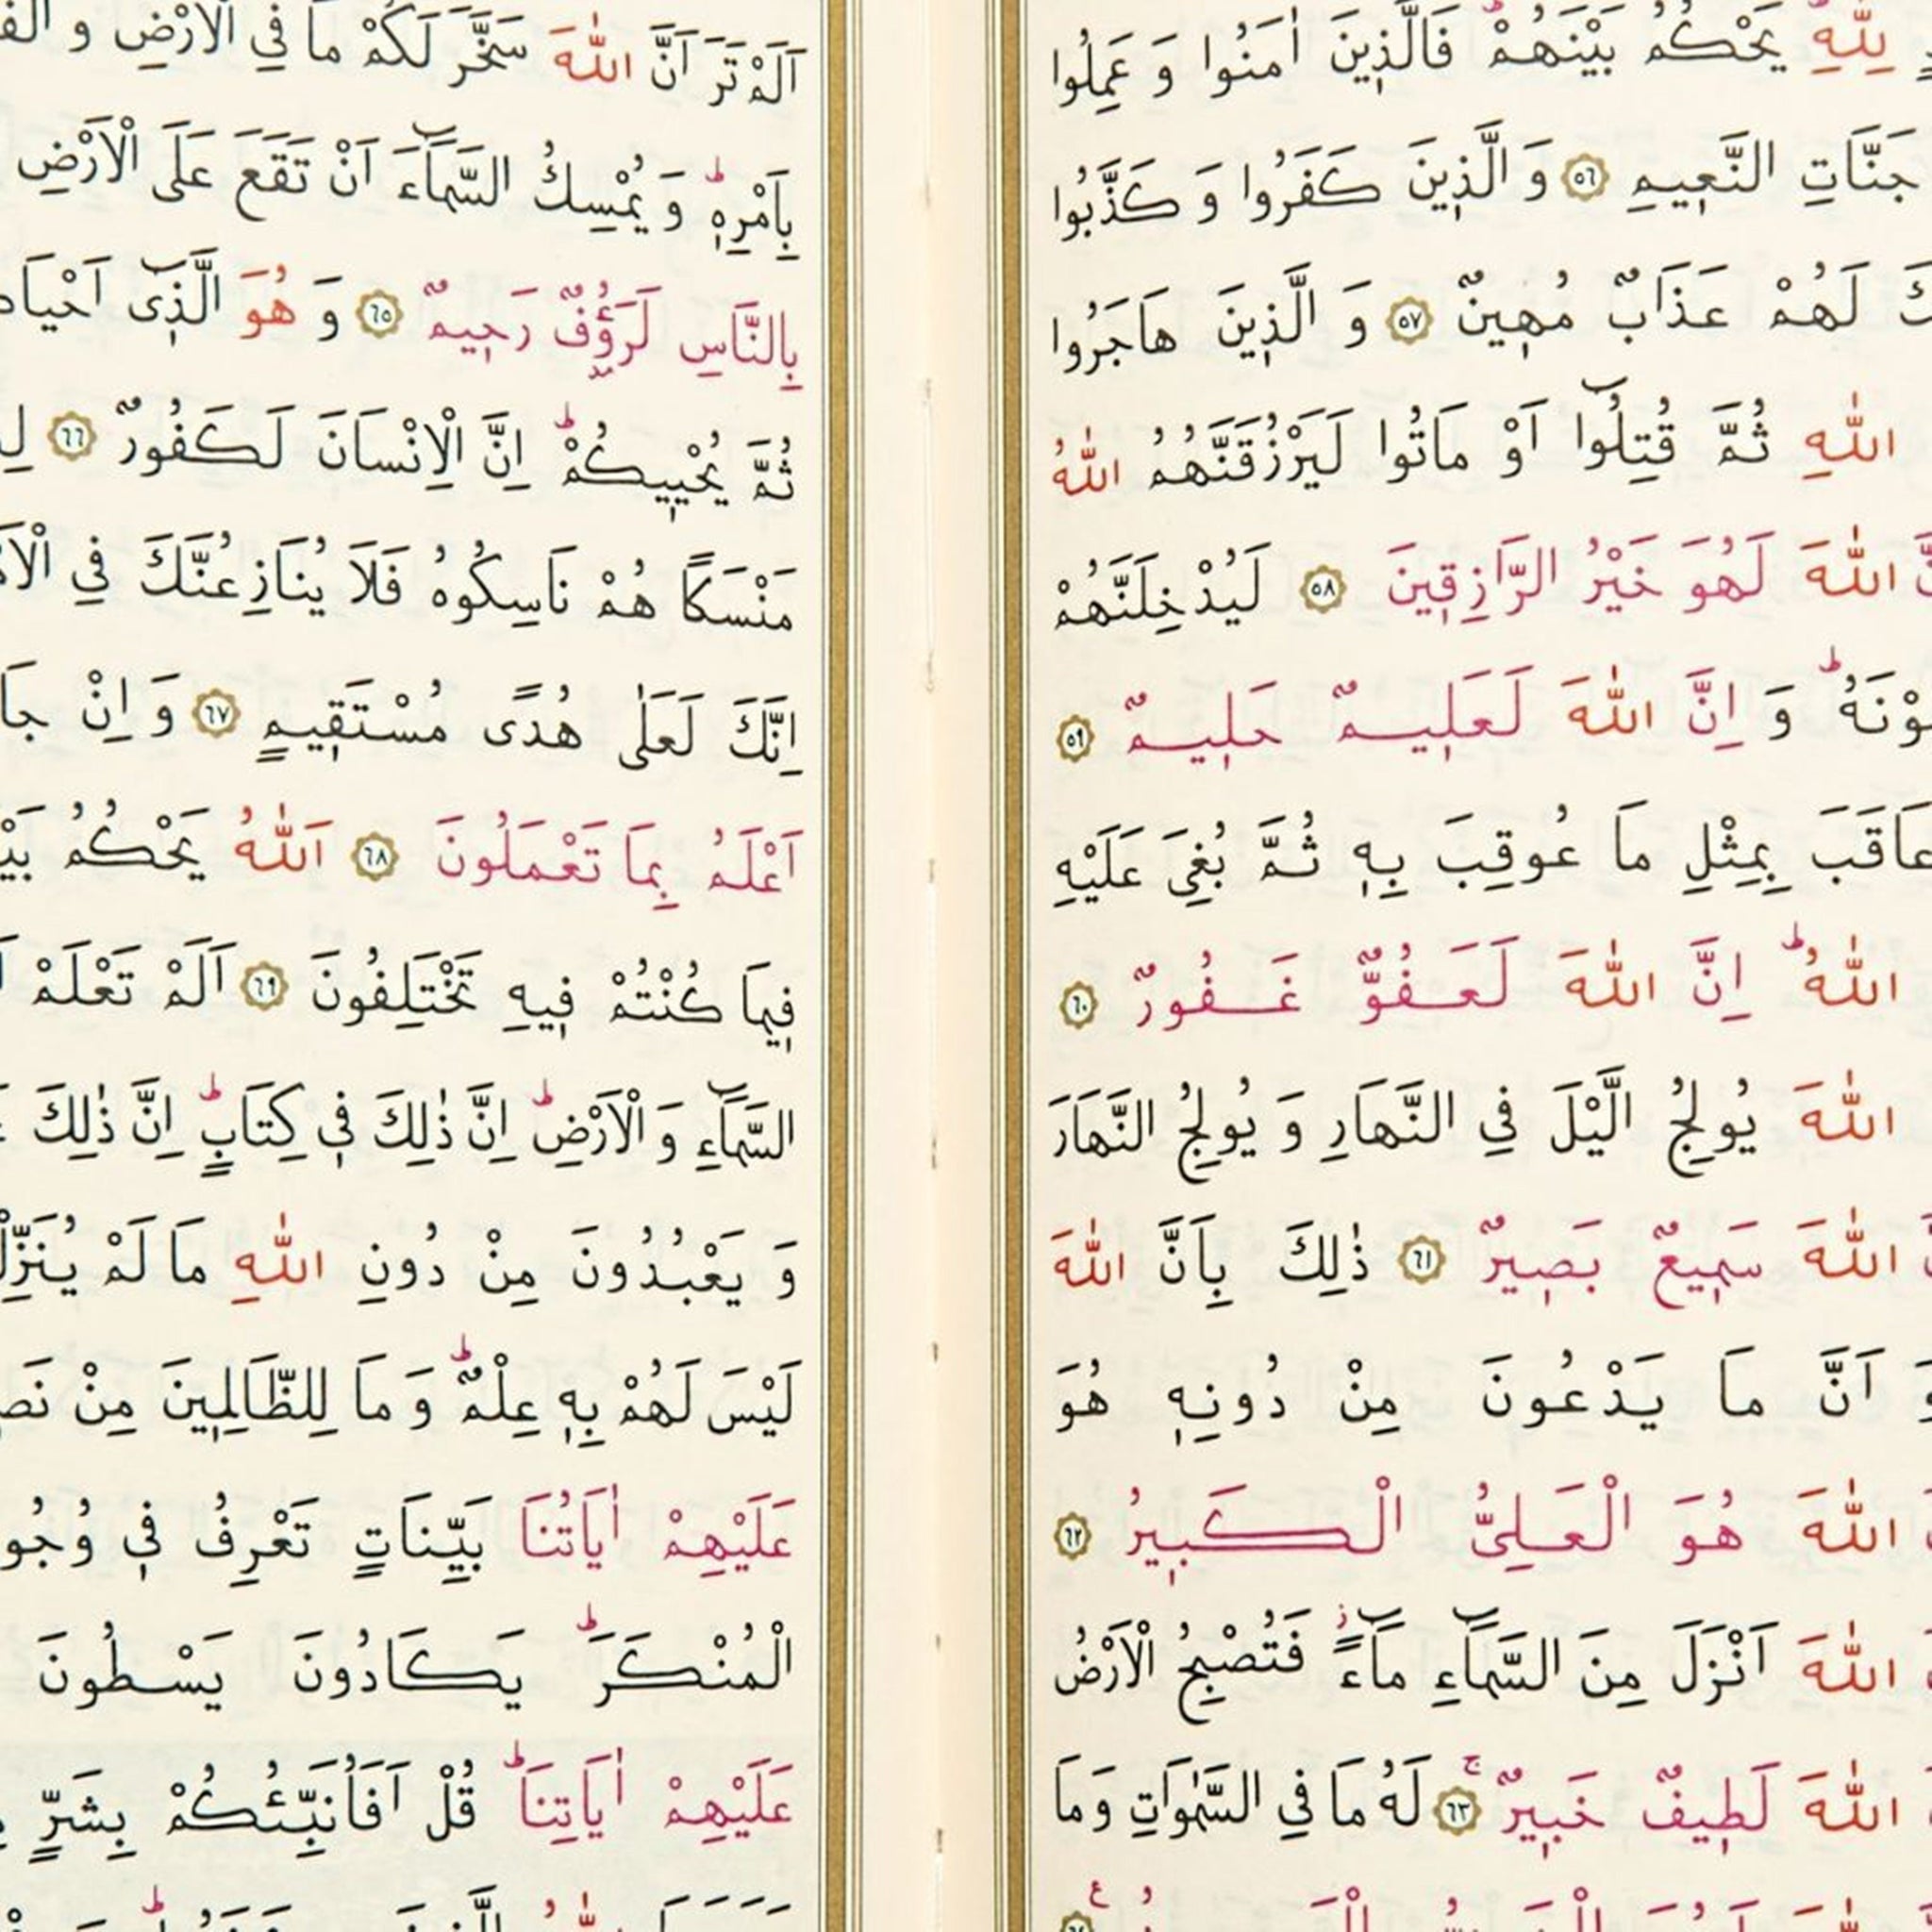 لِلّٰهِ يَحْكُمُ بَيْنَهُمْ ط فَالَّذِينَ اٰمَنُوا وَ عَمِلُوا
جَنَّاتِ النَّعِيمِ ٥٦ وَ الَّذِينَ كَفَرُوا وَ كَذَّبُوا
لَهُمْ عَذَابٌ مُهِينٌ ٥٧ وَ الَّذِينَ هَاجَرُوا
اللّٰهِ ثُمَّ قُتِلُوا اَوْ مَاتُوا لَيَرْزُقَنَّهُمُ اللّٰهُ
اللّٰهَ لَهُوَ خَيْرُ الرَّازِقِينَ ٥٨ لَيُدْخِلَنَّهُمْ
وْنَهُ ط وَ اِنَّ اللّٰهَ لَعَلِيمٌ حَلِيمٌ ٥٩
عَاقَبَ بِمِثْلِ مَا عُوقِبَ بِهِ ثُمَّ بُغِيَ عَلَيْهِ
اللّٰهُ ط اِنَّ اللّٰهَ لَعَفُوٌّ غَفُورٌ ٦٠
اللّٰهَ يُولِجُ الَّيْلَ فِي النَّهَارِ وَ يُولِجُ النَّهَارَ
اللّٰهَ سَمِيعٌ بَصِيرٌ ٦١ ذٰلِكَ بِاَنَّ اللّٰهَ
وَ اَنَّ مَا يَدْعُونَ مِنْ دُونِهِ هُوَ
اللّٰهَ هُوَ الْعَلِيُّ الْكَبِيرُ ٦٢
اللّٰهَ اَنْزَلَ مِنَ السَّمَٓاءِ مَٓاءً ز فَتُصْبِحُ الْاَرْضُ
اللّٰهَ لَطِيفٌ خَبِيرٌ ج ٦٣ لَهُ مَا فِي السَّمٰوَاتِ وَمَا
اَلَمْ تَرَ اَنَّ اللّٰهَ سَخَّرَ لَكُمْ مَا فِي الْاَرْضِ وَ
بِاَمْرِهِ ط وَ يُمْسِكُ السَّمَٓاءَ اَنْ تَقَعَ عَلَى الْاَرْضِ
بِالنَّاسِ لَرَؤُفٌ رَحِيمٌ ٦٥ وَ هُوَ الَّذِٓي اَحْيَا
ثُمَّ يُحْيِيكُمْ ط اِنَّ الْاِنْسَانَ لَكَفُورٌ ٦٦ لِ
مَنْسَكًا هُمْ نَاسِكُوهُ فَلَا يُنَازِعُنَّكَ فِي
اِنَّكَ لَعَلٰى هُدًى مُسْتَقِيمٍ ٦٧ وَ اِنْ جَا
اَعْلَمُ بِمَا تَعْمَلُونَ ٦٨ اَللّٰهُ يَحْكُمُ بَيْ
فِيمَا كُنْتُمْ فِيهِ تَخْتَلِفُونَ ٦٩ اَلَمْ تَعْلَمْ
السَّمَٓاءِ وَ الْاَرْضِ ط اِنَّ ذٰلِكَ فِي كِتَابٍ ط اِنَّ ذٰلِكَ
وَ يَعْبُدُونَ مِنْ دُونِ اللّٰهِ مَا لَمْ يُنَزِّلْ
لَيْسَ لَهُمْ بِهِ عِلْمٌ ط وَ مَا لِلظَّالِمِينَ مِنْ نَصِ
عَلَيْهِمْ اٰيَاتُنَا بَيِّنَاتٍ تَعْرِفُ فِي وُجُو
الْمُنْكَرَ ط يَكَادُونَ يَسْطُونَ
عَلَيْهِمْ اٰيَاتِنَا ط قُلْ اَفَاُنَبِّئُكُمْ بِشَرٍّ